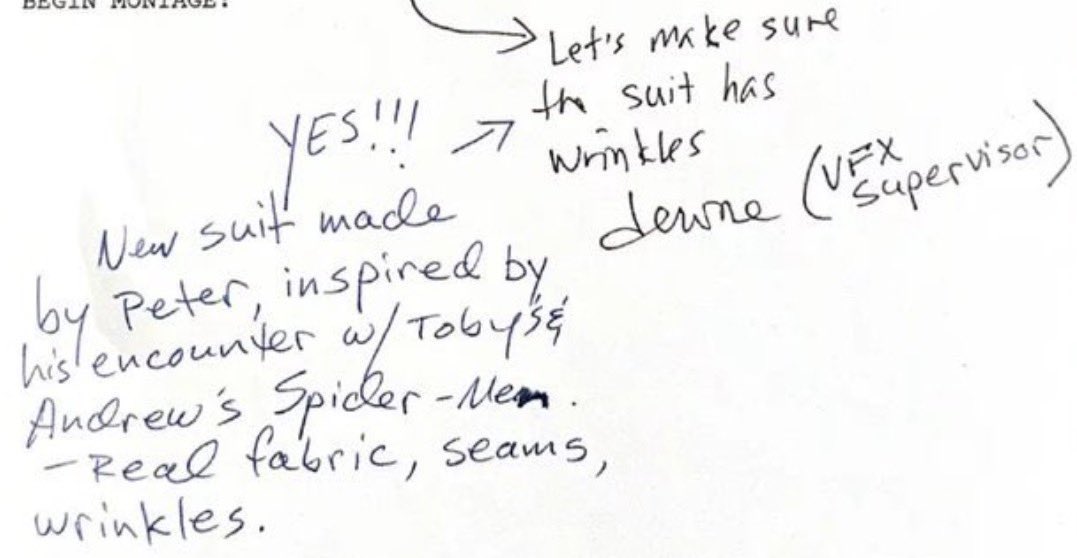 BEGIN MONTAGE:
Let's make sure
the suit has
wrinkles
(VFX
supervisor)
YES!!!
New suit made
by Peter, inspired by
his encounter w/ Toby's &
Andrew's Spider-Men.
- Real fabric, seams,
wrinkles.